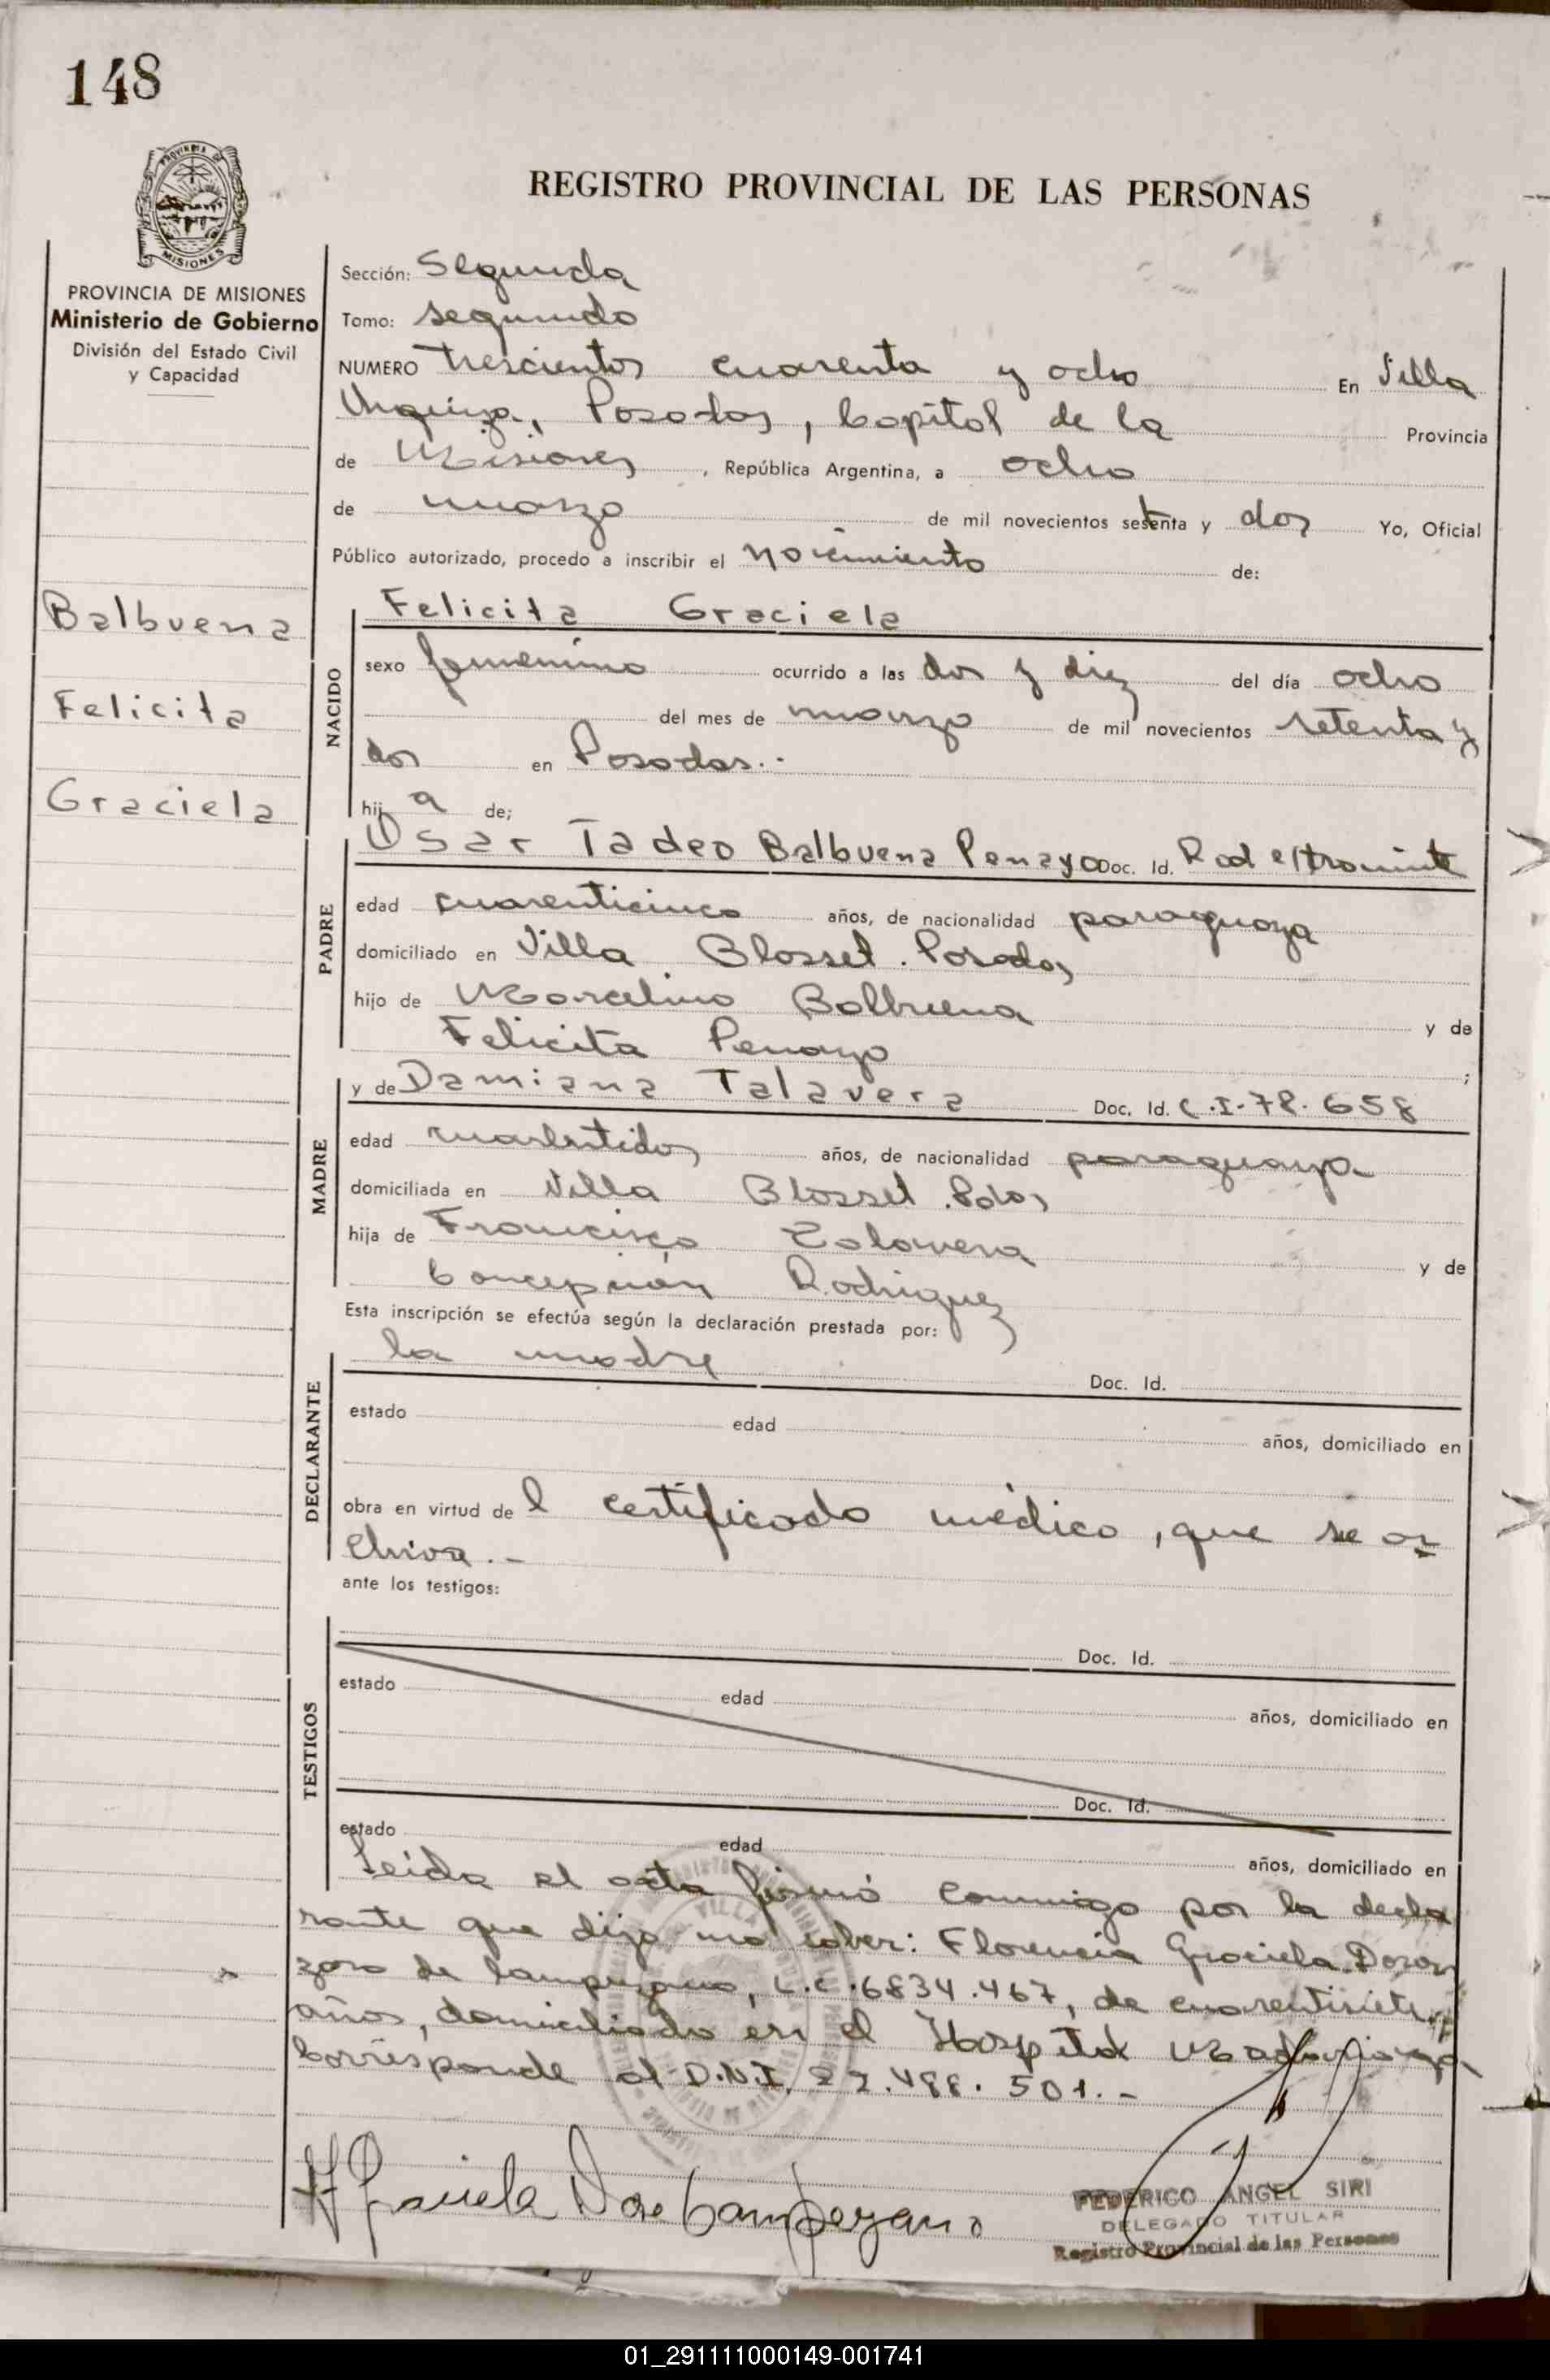 148
PROVINCIA DE MISIONES
REGISTRO PROVINCIAL DE LAS PERSONAS
PROVINCIA DE MISIONES
Ministerio de Gobierno
División del Estado Civil
y Capacidad
Balbuena
Felicita
Graciela
Sección: Segunda
Tomo: segundo
NUMERO trescientos cuarenta y ocho En Villa
Urquiza, Posadas, Capital de la Provincia
de Misiones, República Argentina, a ocho
de marzo de mil novecientos setenta y dos Yo, Oficial
Público autorizado, procedo a inscribir el nacimiento de:
NACIDO
Felicita Graciela
sexo femenino ocurrido a las dos y diez del día ocho
del mes de marzo de mil novecientos setenta y
dos en Posadas.-
hij a de;
PADRE
Osar Tadeo Balbuena Penayo Doc. Id. Rad e/tramite
edad cuarenticinco años, de nacionalidad paraguaya
domiciliado en Villa Blosset. Posadas
hijo de Marcelino Balbuena y de
Felicita Penayo ;
MADRE
y de Damiana Talavera Doc. Id. C.I-78.658
edad cuarentidos años, de nacionalidad paraguaya
domiciliada en Villa Blosset. Pdas
hija de Francisco Talavera y de
Concepción Rodriguez
Esta inscripción se efectúa según la declaración prestada por:
DECLARANTE
la madre Doc. Id.
estado edad años, domiciliado en
obra en virtud de l certificado médico, que se ar
chiva.-
ante los testigos:
TESTIGOS
Doc. Id.
estado edad años, domiciliado en
Doc. Id.
estado edad años, domiciliado en
Leida el acta firmó conmigo por la decla
rante que dijo no saber: Florencia Graciela
de L.C. 6834.467, de cuarentisiete
años, domiciliada en el Hospital Madariaga
Corresponde al D.N.I. 22.488.501.-
FEDERICO ANGEL SIRI
DELEGADO TITULAR
Registro Provincial de las Personas
01_291111000149-001741